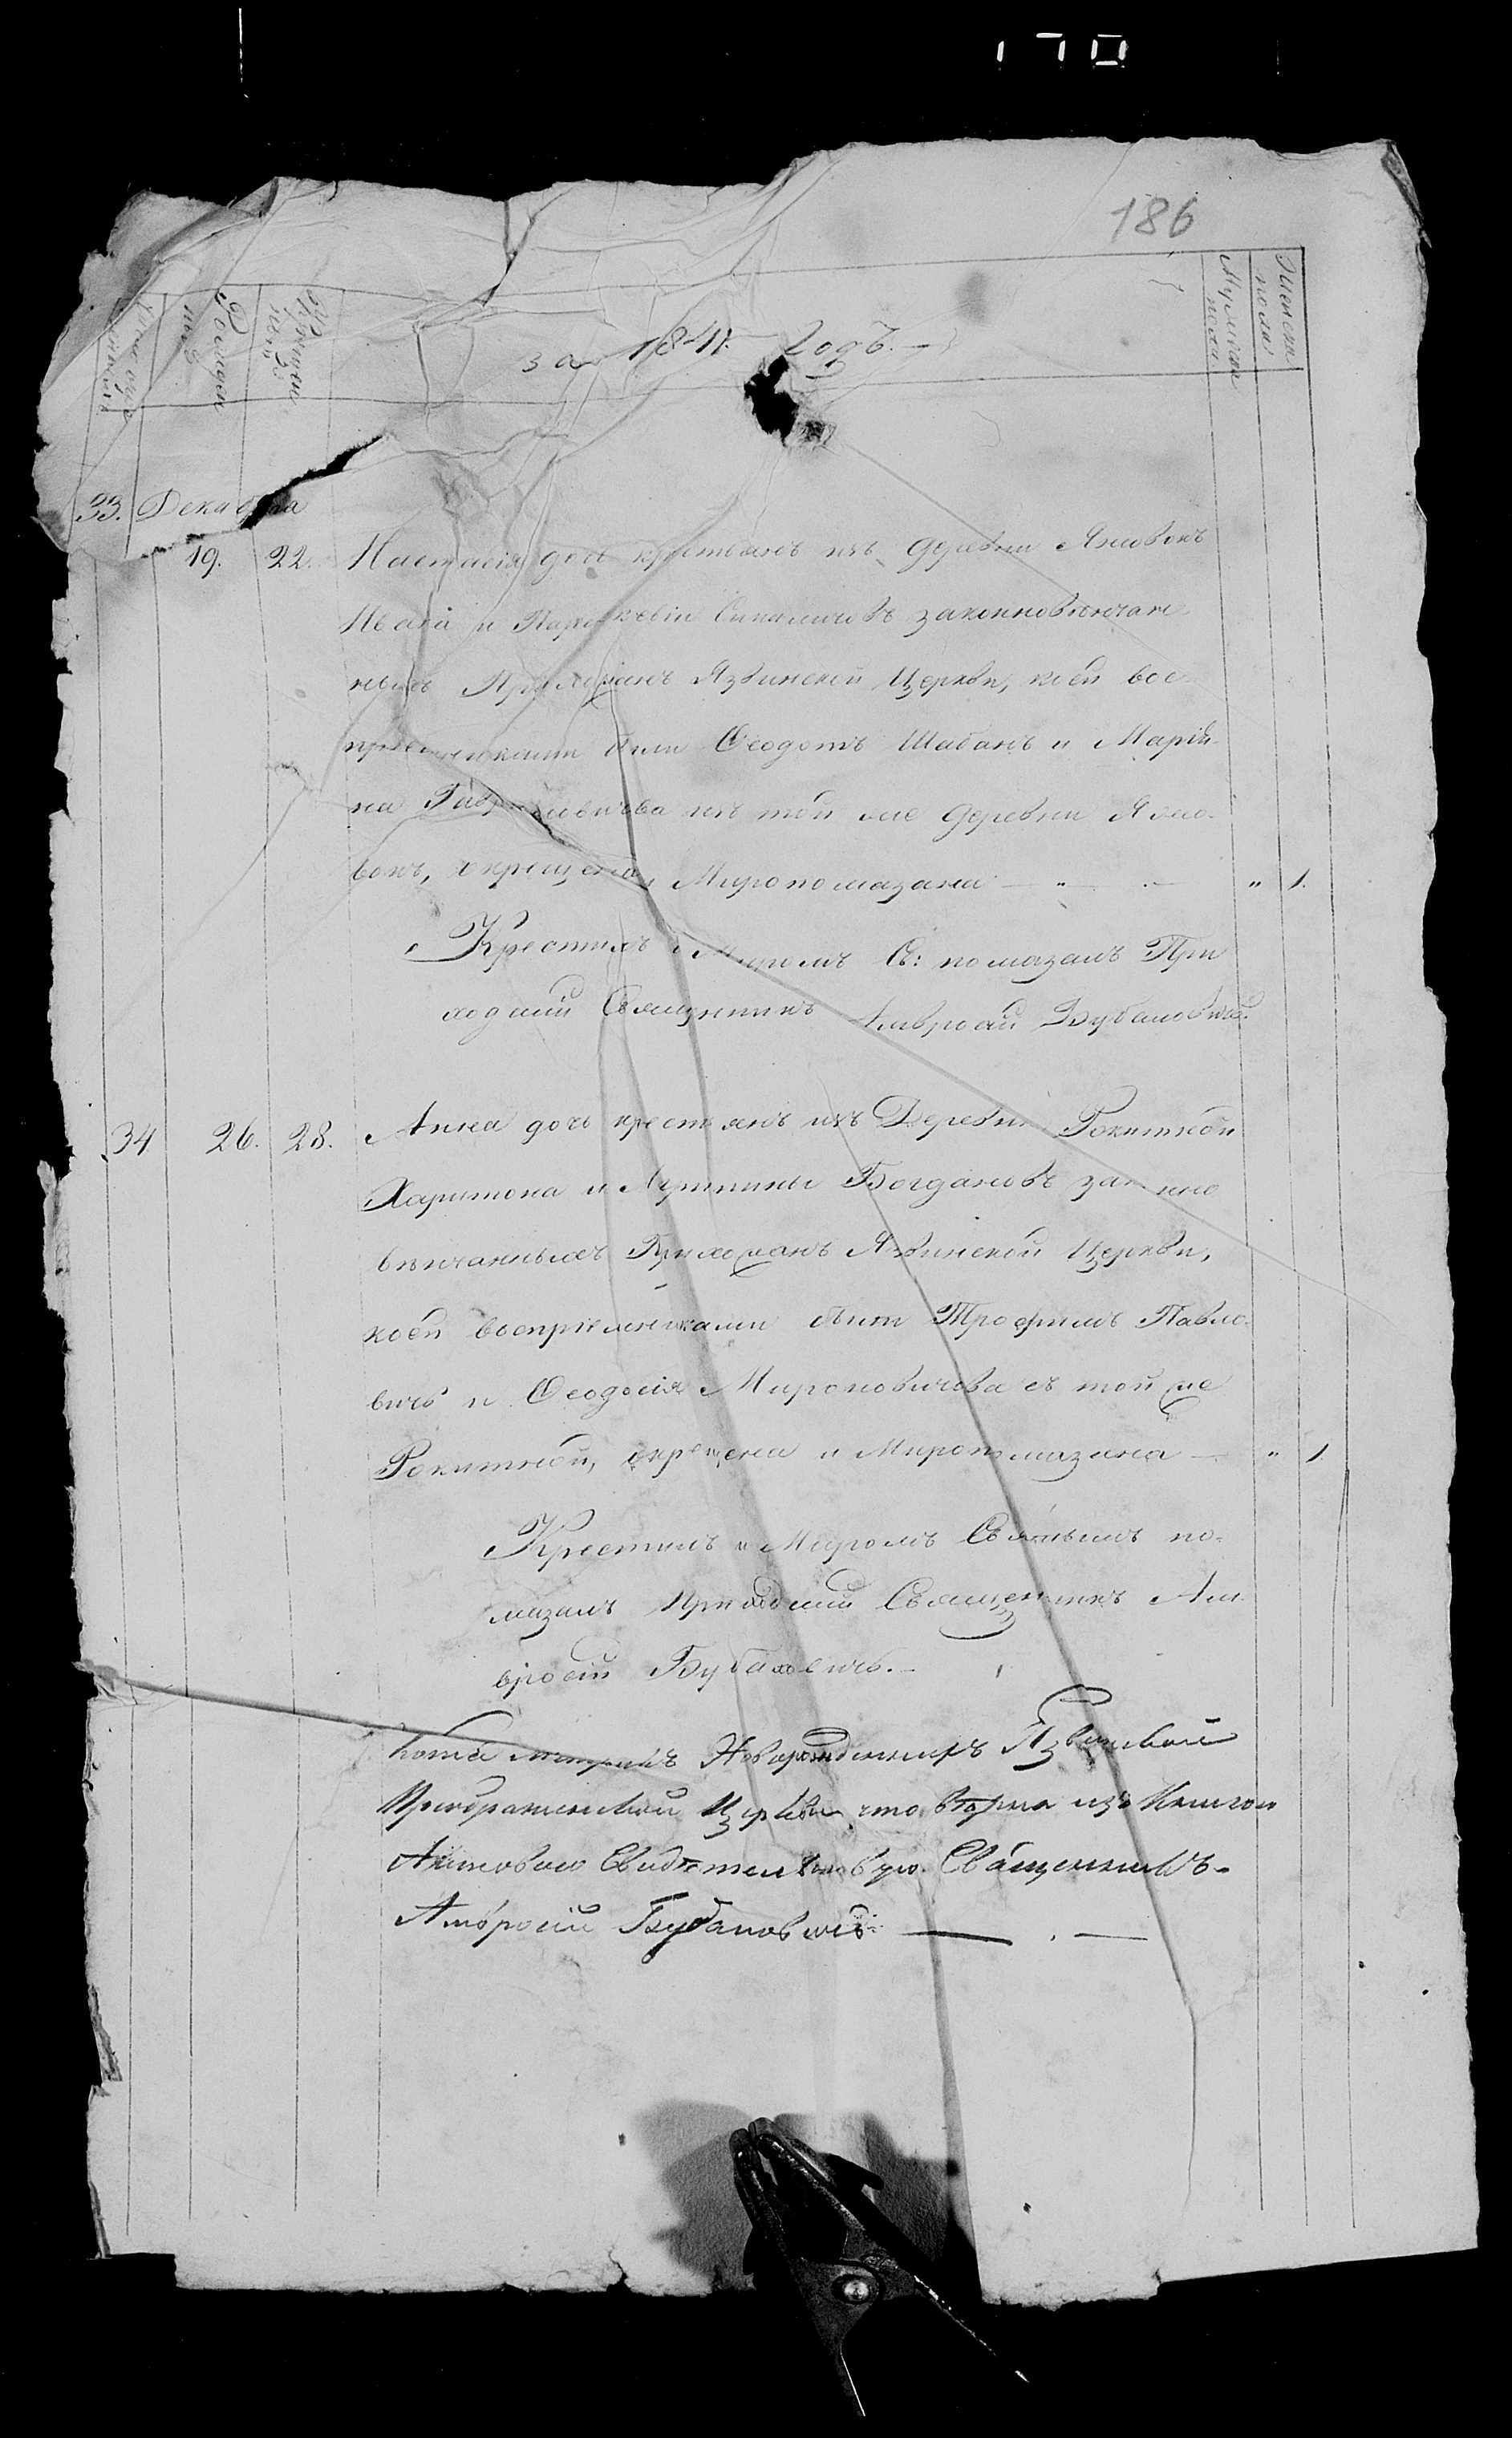 170
186
Женска
пола
Мужеска
пола
Крещен
Рожден
за 1841. Годъ. —
33. Декабря
19. 22. Настасія дочь крестьянъ изъ деревни Яновокъ
и Параскевіи законновѣнчан
ныхъ Прихожанъ Язвинской Церкви, коей вос
пріемниками были Ѳеодотъ Шабанъ и Маріан
на изъ той же деревни Яно-
вокъ, окрещена, Миропомазана — „ — „ 1.
Крестилъ и Мѵромъ С: помазалъ При
ходскій Священникъ Амвросій Бубановичъ.
34 26. 28. Анна дочь крестьянъ изъ Деревни Рокитной
Харитона и Іустины Богдановъ законно
вѣнчанныхъ Прихожанъ Язвинской Церкви,
коей воспріемниками были Трофимъ Павло-
вичъ и Ѳеодосія Мироновичова съ той же
Рокитной, окрещена и Миропомазана — „ 1
Крестилъ и Мѵромъ Святымъ по-
мазалъ Приходскій Священникъ Ам
вросій Бубановичъ. —
Новорожденныхъ Язвинской
Преображенской Церкви, что вѣрна изъ Книгою
Актовою Свидѣтельствую. Священникъ-
Амвросій Бубановичъ — . —